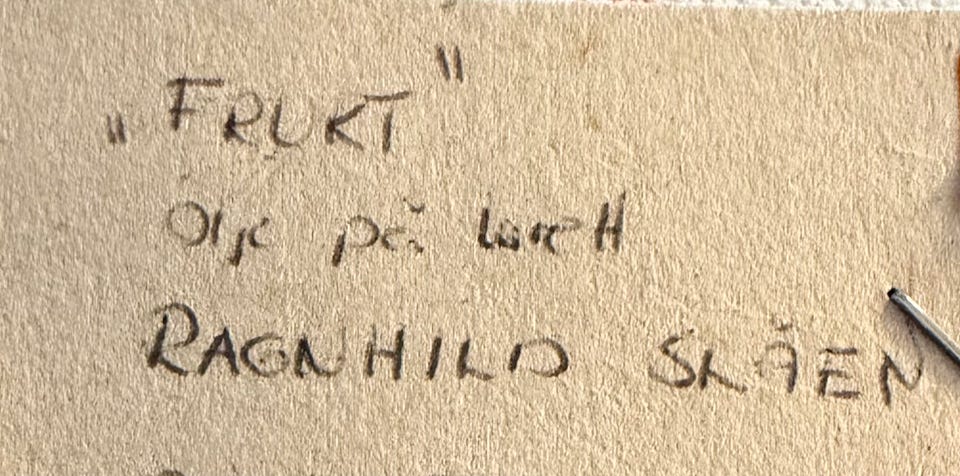 „FRUKT"
Olje på lerrett
RAGNHILD SKÅEN